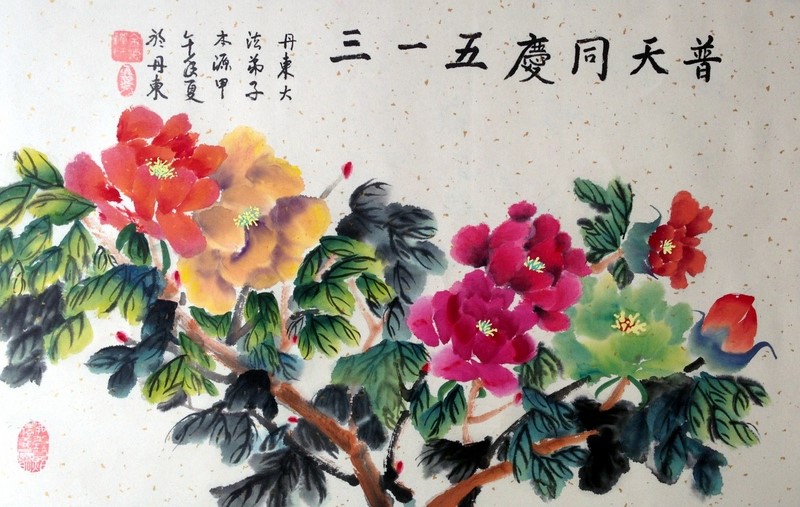 普天同慶五一三
丹東大
法弟子
本源甲
午夏
於丹東